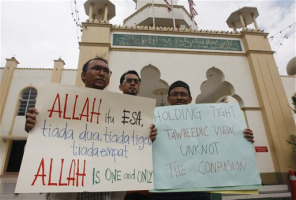 ALLAH itu ESA
tiada dua, tiada tiga
tiada empat
ALLAH IS ONE and ONLY
HOLDING TIGHT
TAWHEEDIC VIEW,
UNKNOT
THE CONFUSION